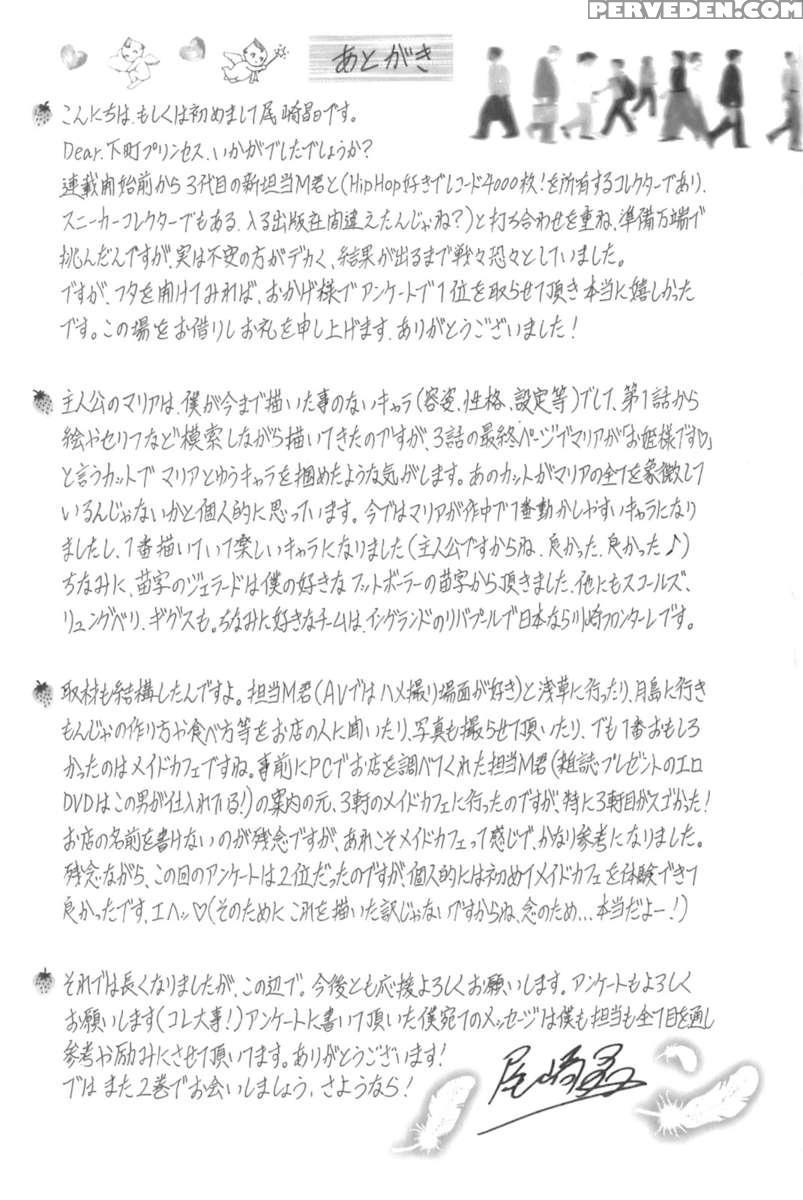 PERVEDEN.COM
あとがき
こんにちは、もしくは初めまして尾崎晶です。
Dear.下町プリンセス、いかがでしたでしょうか?
連載開始前から3代目の新担当M君と(HipHop好きでレコード4000枚!を所有するコレクターであり、
スニーカーコレクターでもある、入る出版社間違えたんじゃね?)と打ち合わせを重ね、準備万端で
挑んだんですが、実は不安の方がデカく、結果が出るまで戦々恐々としていました。
ですが、フタを開けてみれば、おかげ様でアンケートで1位を取らせて頂き本当に嬉しかった
です。この場をお借りしお礼を申し上げます、ありがとうございました!
主人公のマリアは、僕が今まで描いた事のないキャラ(容姿、性格、設定等)でして、第1話から
絵やセリフなど模索しながら描いてきたのですが、3話の最終ページでマリアが「お姫様です♡」
と言うカットでマリアとゆうキャラを掴めたような気がします。あのカットがマリアの全てを象徴して
いるんじゃないかと個人的に思っています。今ではマリアが作中で1番動かしやすいキャラになり
ましたし、1番描いていて楽しいキャラになりました(主人公ですからね、良かった、良かった♪)
ちなみに、苗字のジェラードは僕の好きなフットボーラーの苗字から頂きました、他にもスコールズ、
リュングベリ、ギグスも。ちなみに好きなチームは、イングランドのリバプールで日本なら川崎フロンターレです。
取材も結構したんですよ。担当M君(AVではハメ撮り場面が好き)と浅草に行ったり、月島に行き
もんじゃの作り方や食べ方等をお店の人に聞いたり、写真も撮らせて頂いたり、でも1番おもしろ
かったのはメイドカフェですね。事前にPCでお店を調べてくれた担当M君(雑誌プレゼントのエロ
DVDはこの男が仕入れてる!)の案内の元、3軒のメイドカフェに行ったのですが、特に3軒目がスゴかった!
お店の名前を書けないのが残念ですが、あれこそメイドカフェって感じで、かなり参考になりました。
残念ながら、この回のアンケートは2位だったのですが、個人的には初めてメイドカフェを体験できて
良かったです、エヘッ♡(そのためにこれを描いた訳じゃないですからね、念のため…本当だよー!)
それでは長くなりましたが、この辺で。今後とも応援よろしくお願いします。アンケートもよろしく
お願いします(コレ大事!)アンケートに書いて頂いた僕宛てのメッセージは僕も担当も全て目を通し
参考や励みにさせて頂いてます。ありがとうございます!
では また2巻でお会いしましょう、さようなら!
尾崎晶